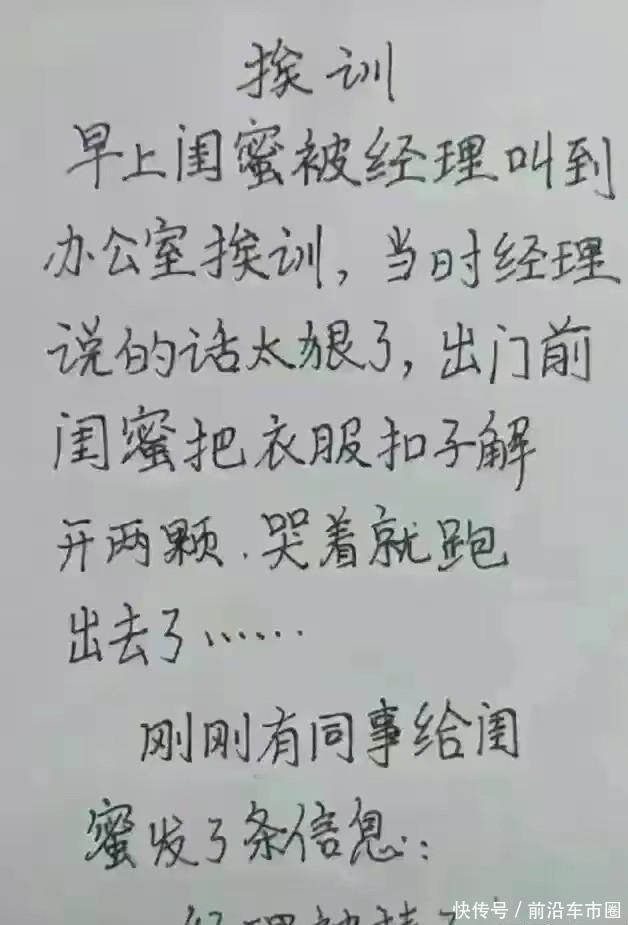 挨训
早上闺蜜被经理叫到
办公室挨训，当时经理
说的话太狠了，出门前
闺蜜把衣服扣子解
开两颗．哭着就跑
出去了……
刚刚有同事给闺
蜜发了条信息：
快传号／前沿车市圈